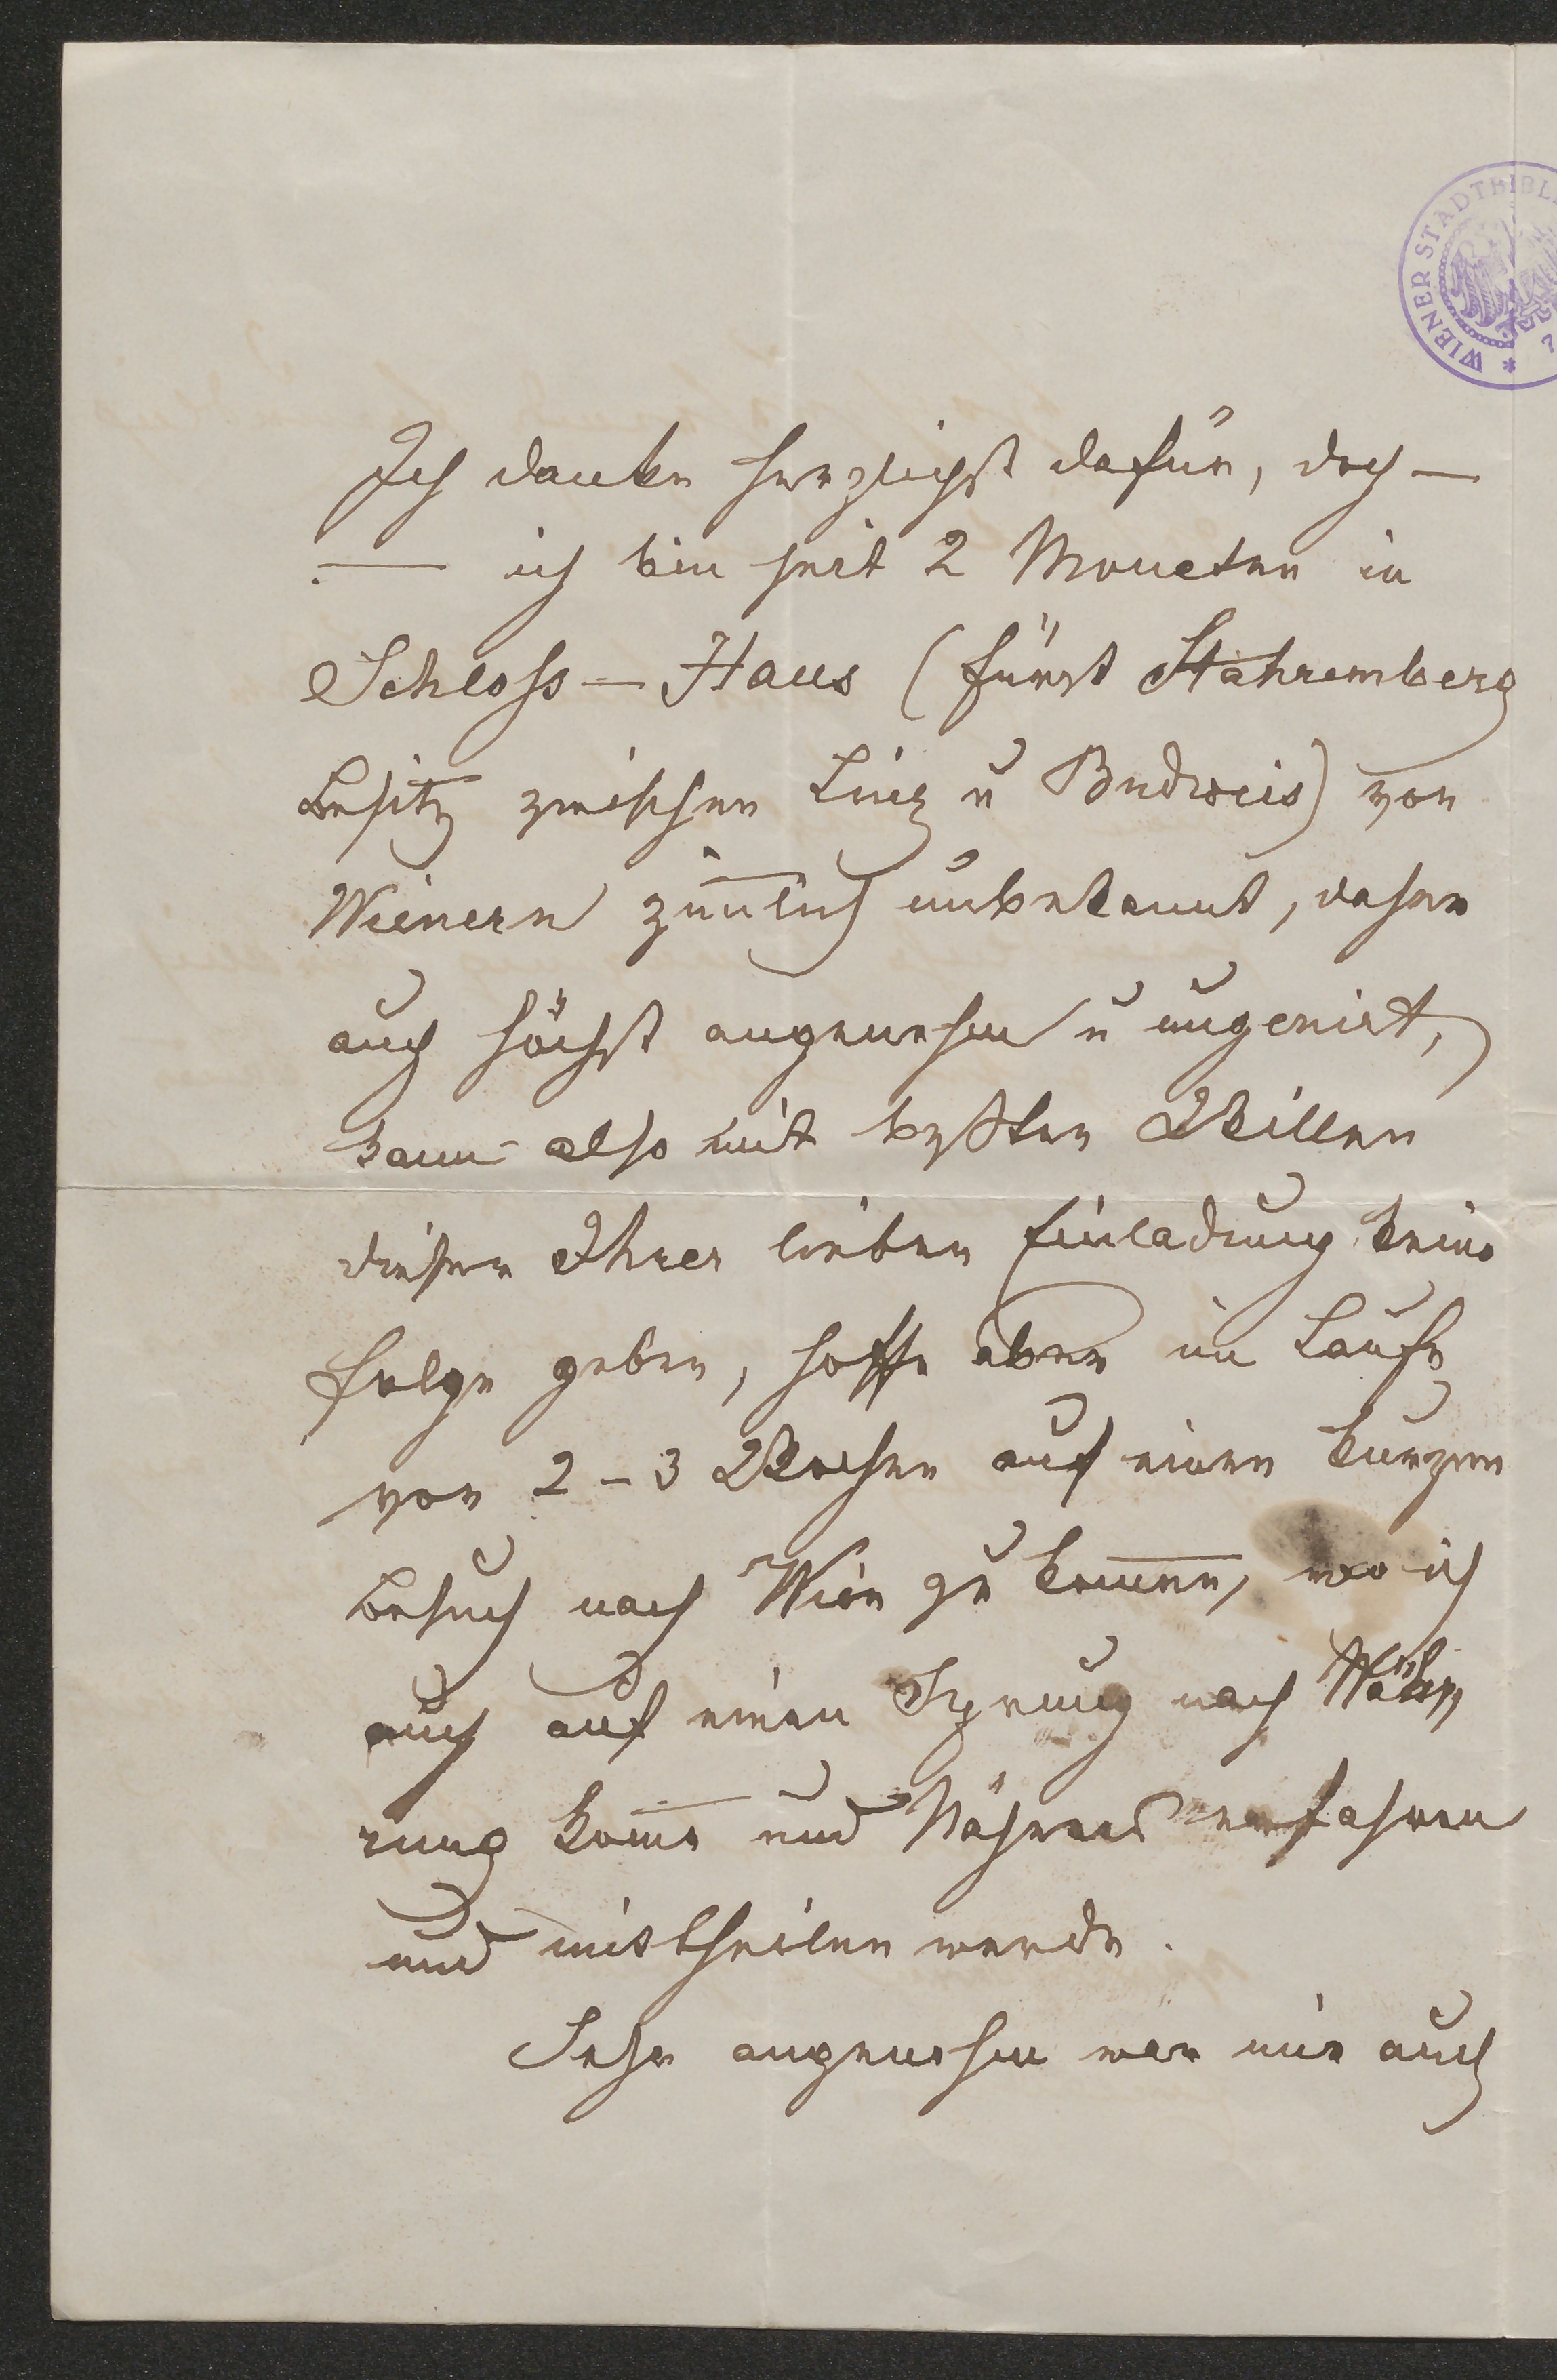 WIENER STADTBIBL
Ich danke herzlichst dafür, doch —
— ich bin seit 2 Monaten in
Schloss – Haus (Fürst Stahremberg
Besitz zwischen Linz u Budweis) von
Wienern zimlich unbekannt, daher
auch höchst angenehm u ungenirt,
kann also mit besten Willen
dieser Ihrer lieben Einladung keine
Folge geben, hoffe aber im Laufe
von 2 – 3 Wochen auf einen kurzen
Besuch nach Wien zu kommen, wo ich
auch auf einen Sprung nach Wäh¬
rung kome und Näheres erfahren
und mittheilen werde.
Sehr angenehm war mir auch